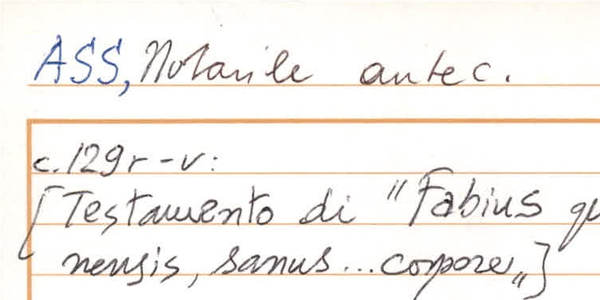 ASS, Notarile antec.
c. 129r-v:
[Testamento di "Fabius qu
nensis, sanus... corpore"]